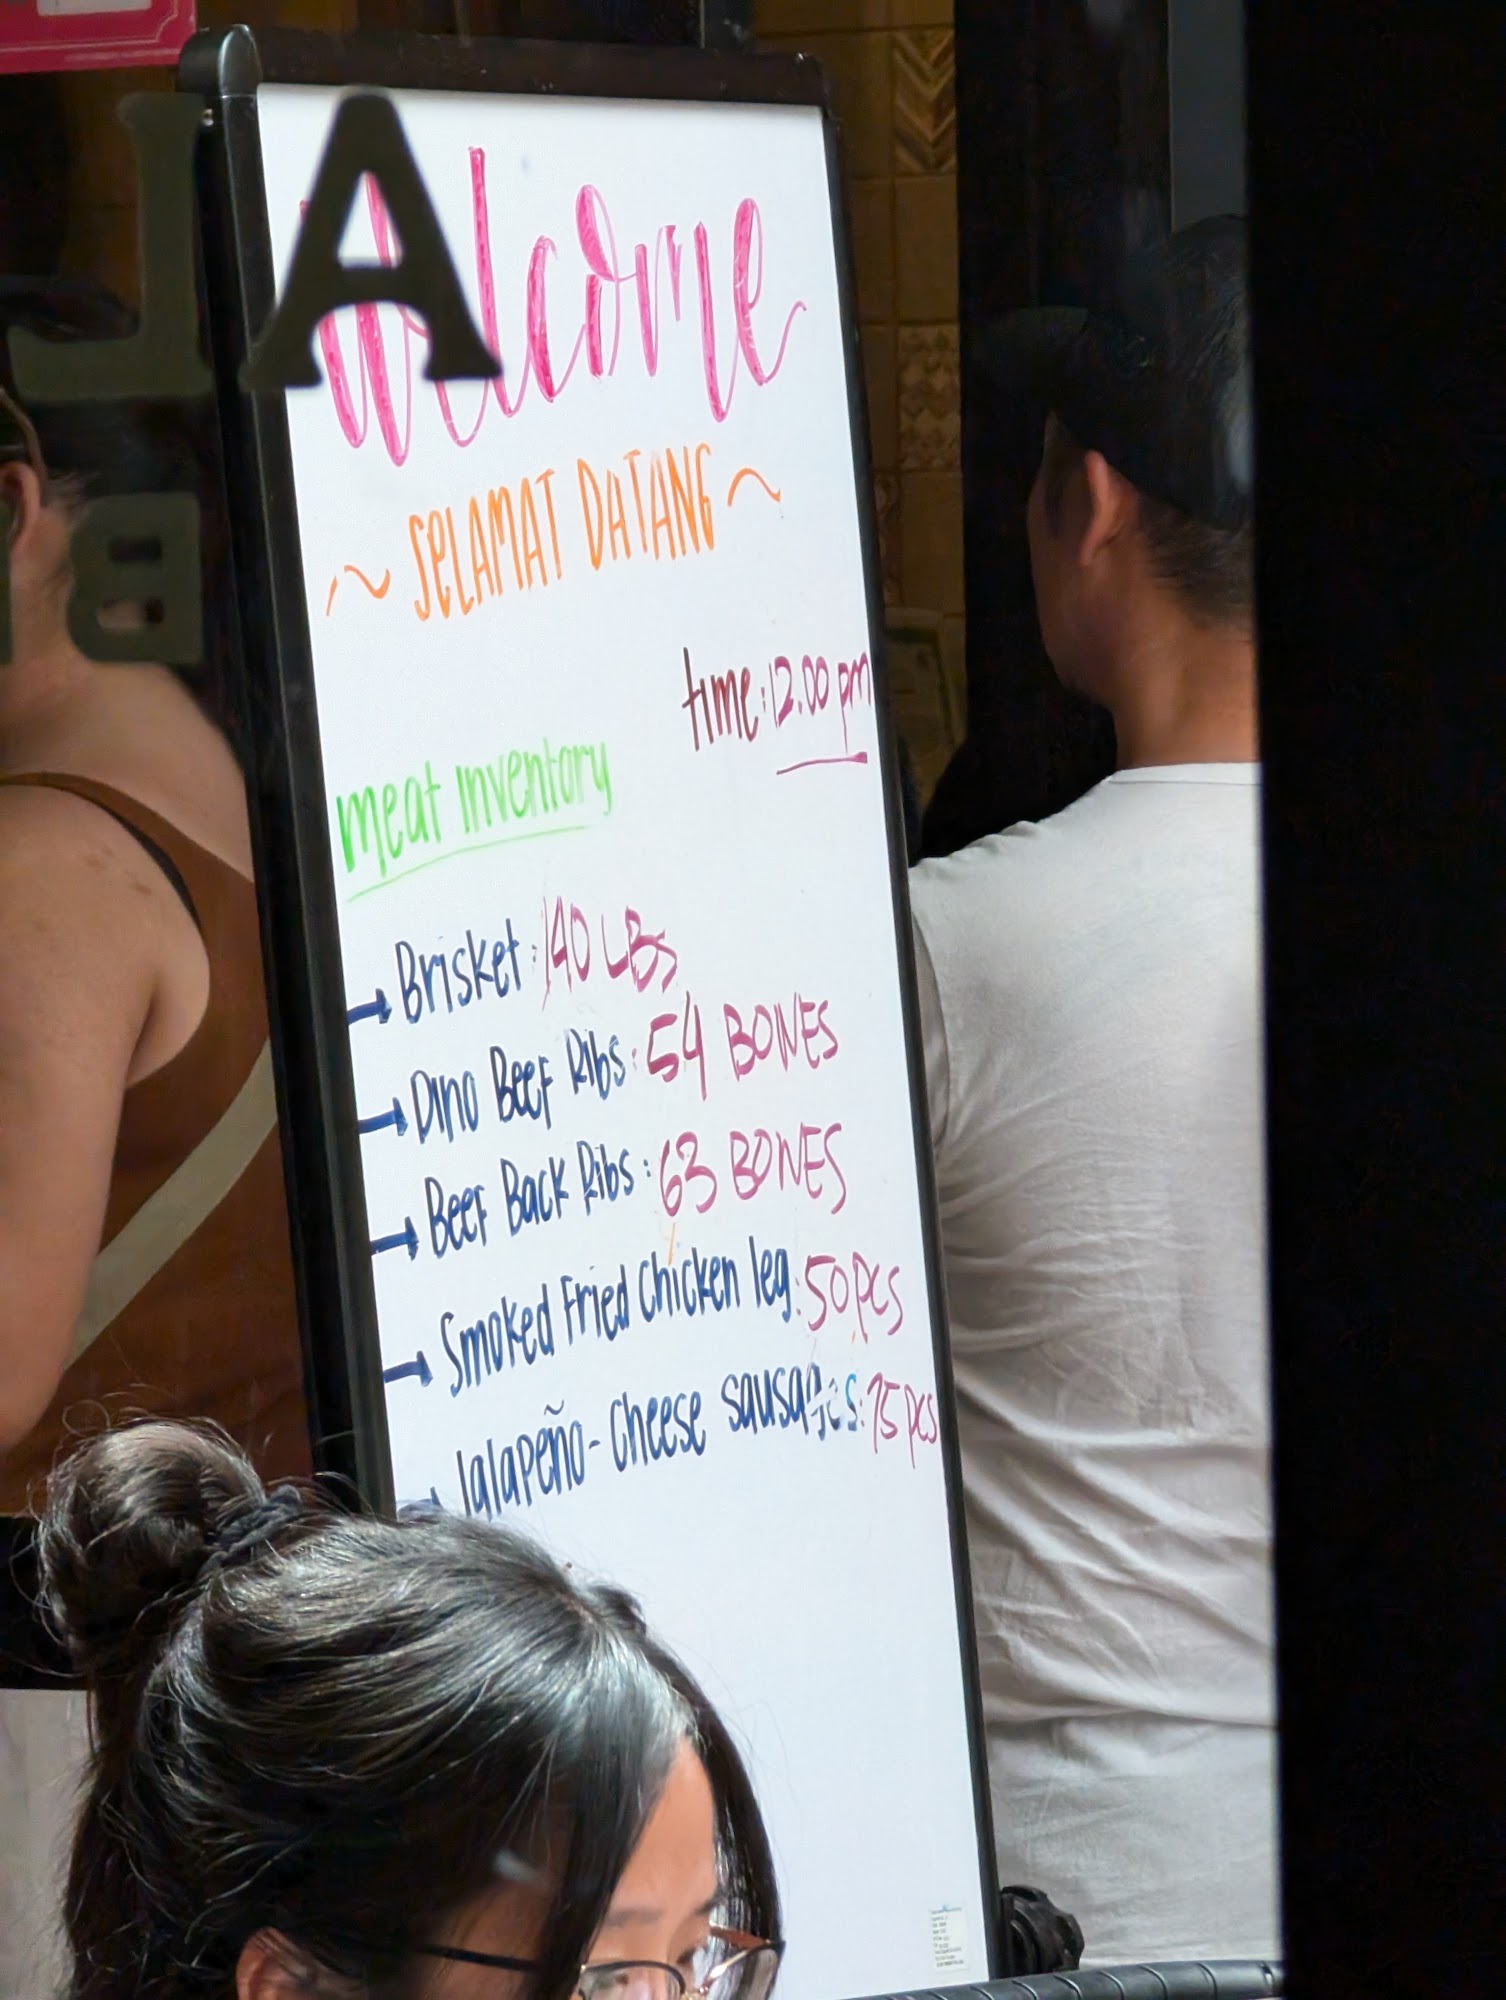 A
Welcome
~ SELAMAT DATANG ~
time: 12.00 pm
meat inventory
Brisket: 140 LBs
Dino Beef Ribs: 54 BONES
Beef Back Ribs: 63 BONES
Smoked Fried Chicken leg: 50 pcs
Jalapeño-Cheese sausages: 75 pcs